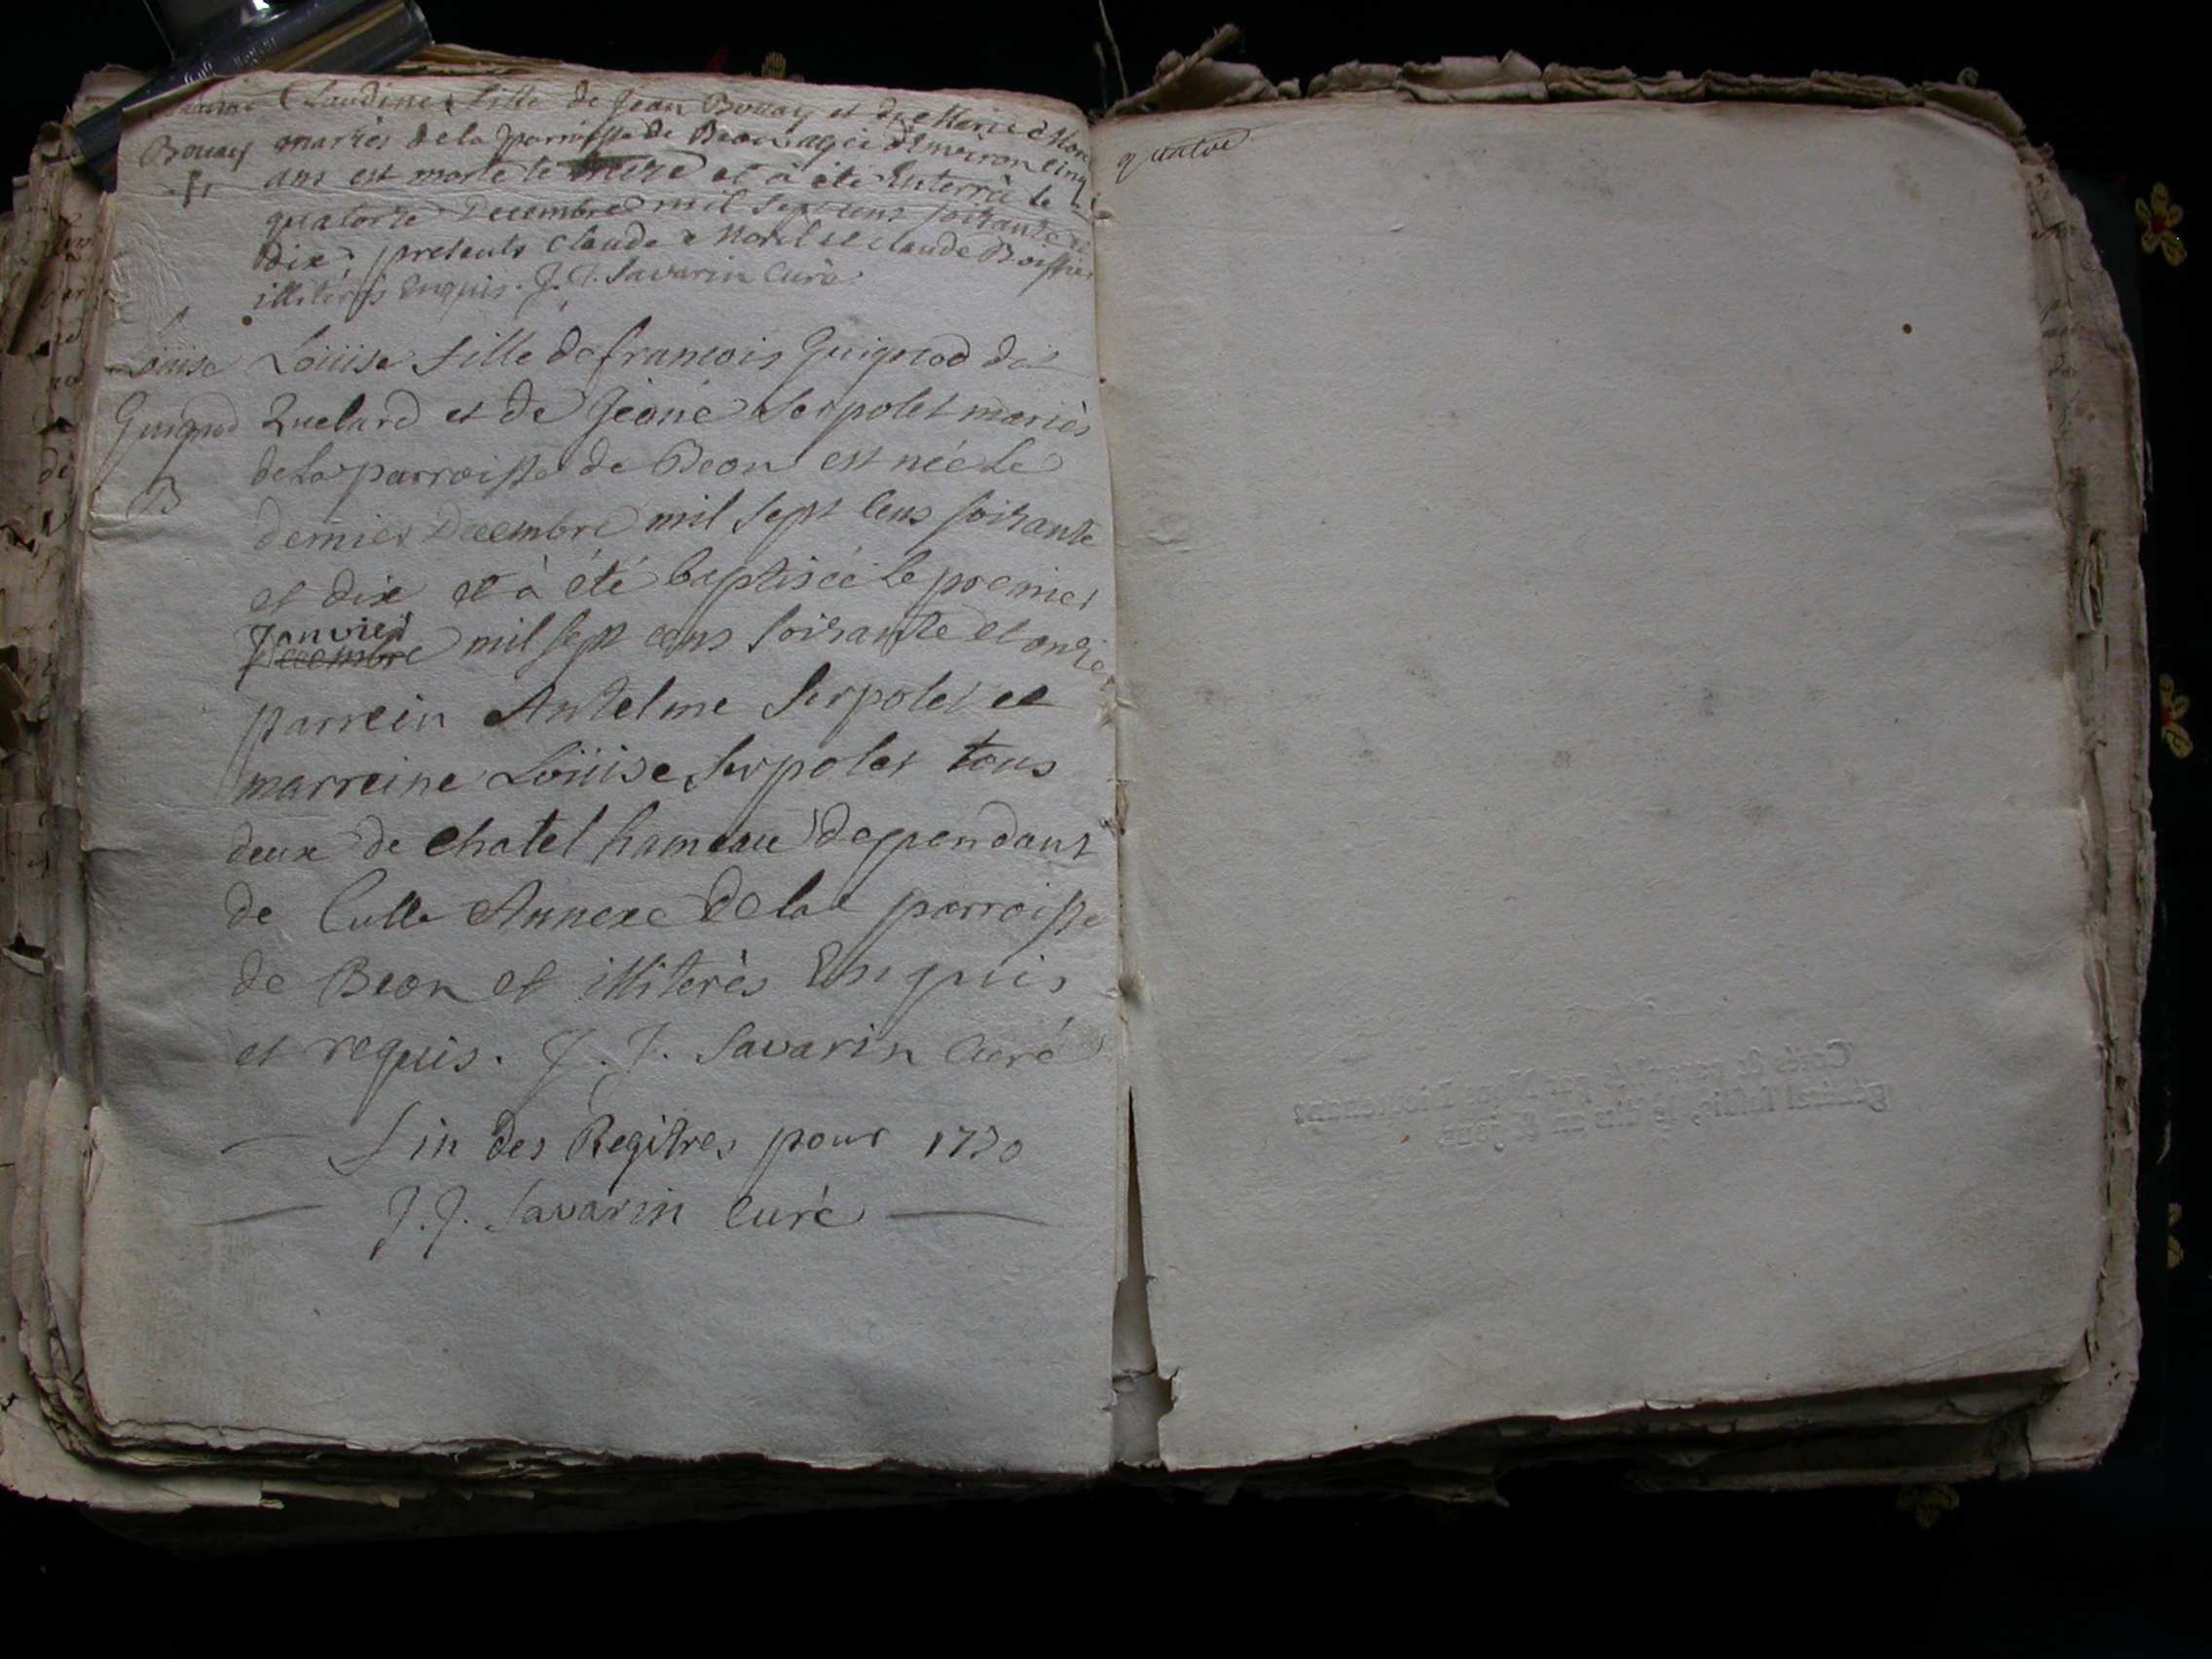 Claudine fille de Jean Bouay et de Marie Mor
Bouay mariès de la parroisse de Beon agée d'environ cinq
ans est morte le treize et à été Enterrée le
quatorze Decembre mil sept cens soixante et
dix presents Claude Morel et Claude Boissier
illiterés Enquis. J. J. Savarin Curé
Loüise Loüise fille de francois Guignod dit
Guignod Quelard et de Jeane Serpolet mariès
de la parroisse de Beon est née le
B
dernier Decembre mil sept cens soixante
et dix et à été baptisée le premier
Janvier
Decembre mil sept cens soixante et onze
parrein Antelme Serpolet et
marreine Loüise Serpolet tous
deux de Chatel hameau dependant
de Culle Annexe de la parroisse
de Beon et illiterès Enquis
et requis. J. J. Savarin Curé
fin des Regitres pour 1770
J. J. Savarin Curé
quatre